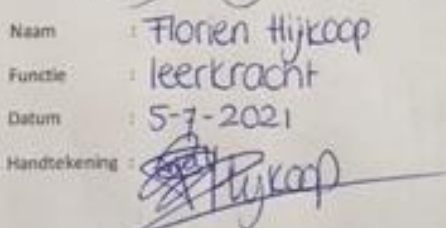 Naam : Florien Hijkoop
Functie : leerkracht
Datum : 5-7-2021
Handtekening : Hijkoop